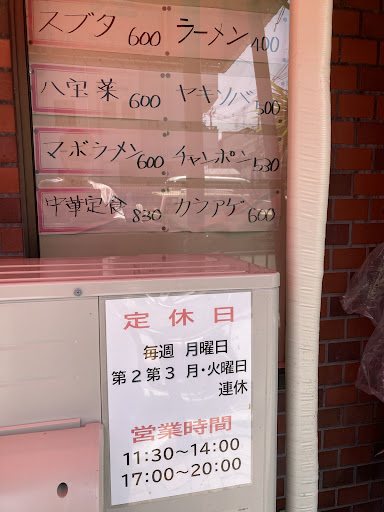 スブタ 600
ラーメン 400
八宝菜 600
ヤキソバ 500
マーボラーメン 600
チャンポン 530
中華定食 830
カラアゲ 600
定休日
毎週 月曜日
第2第3 月・火曜日
連休
営業時間
11:30～14:00
17:00～20:00